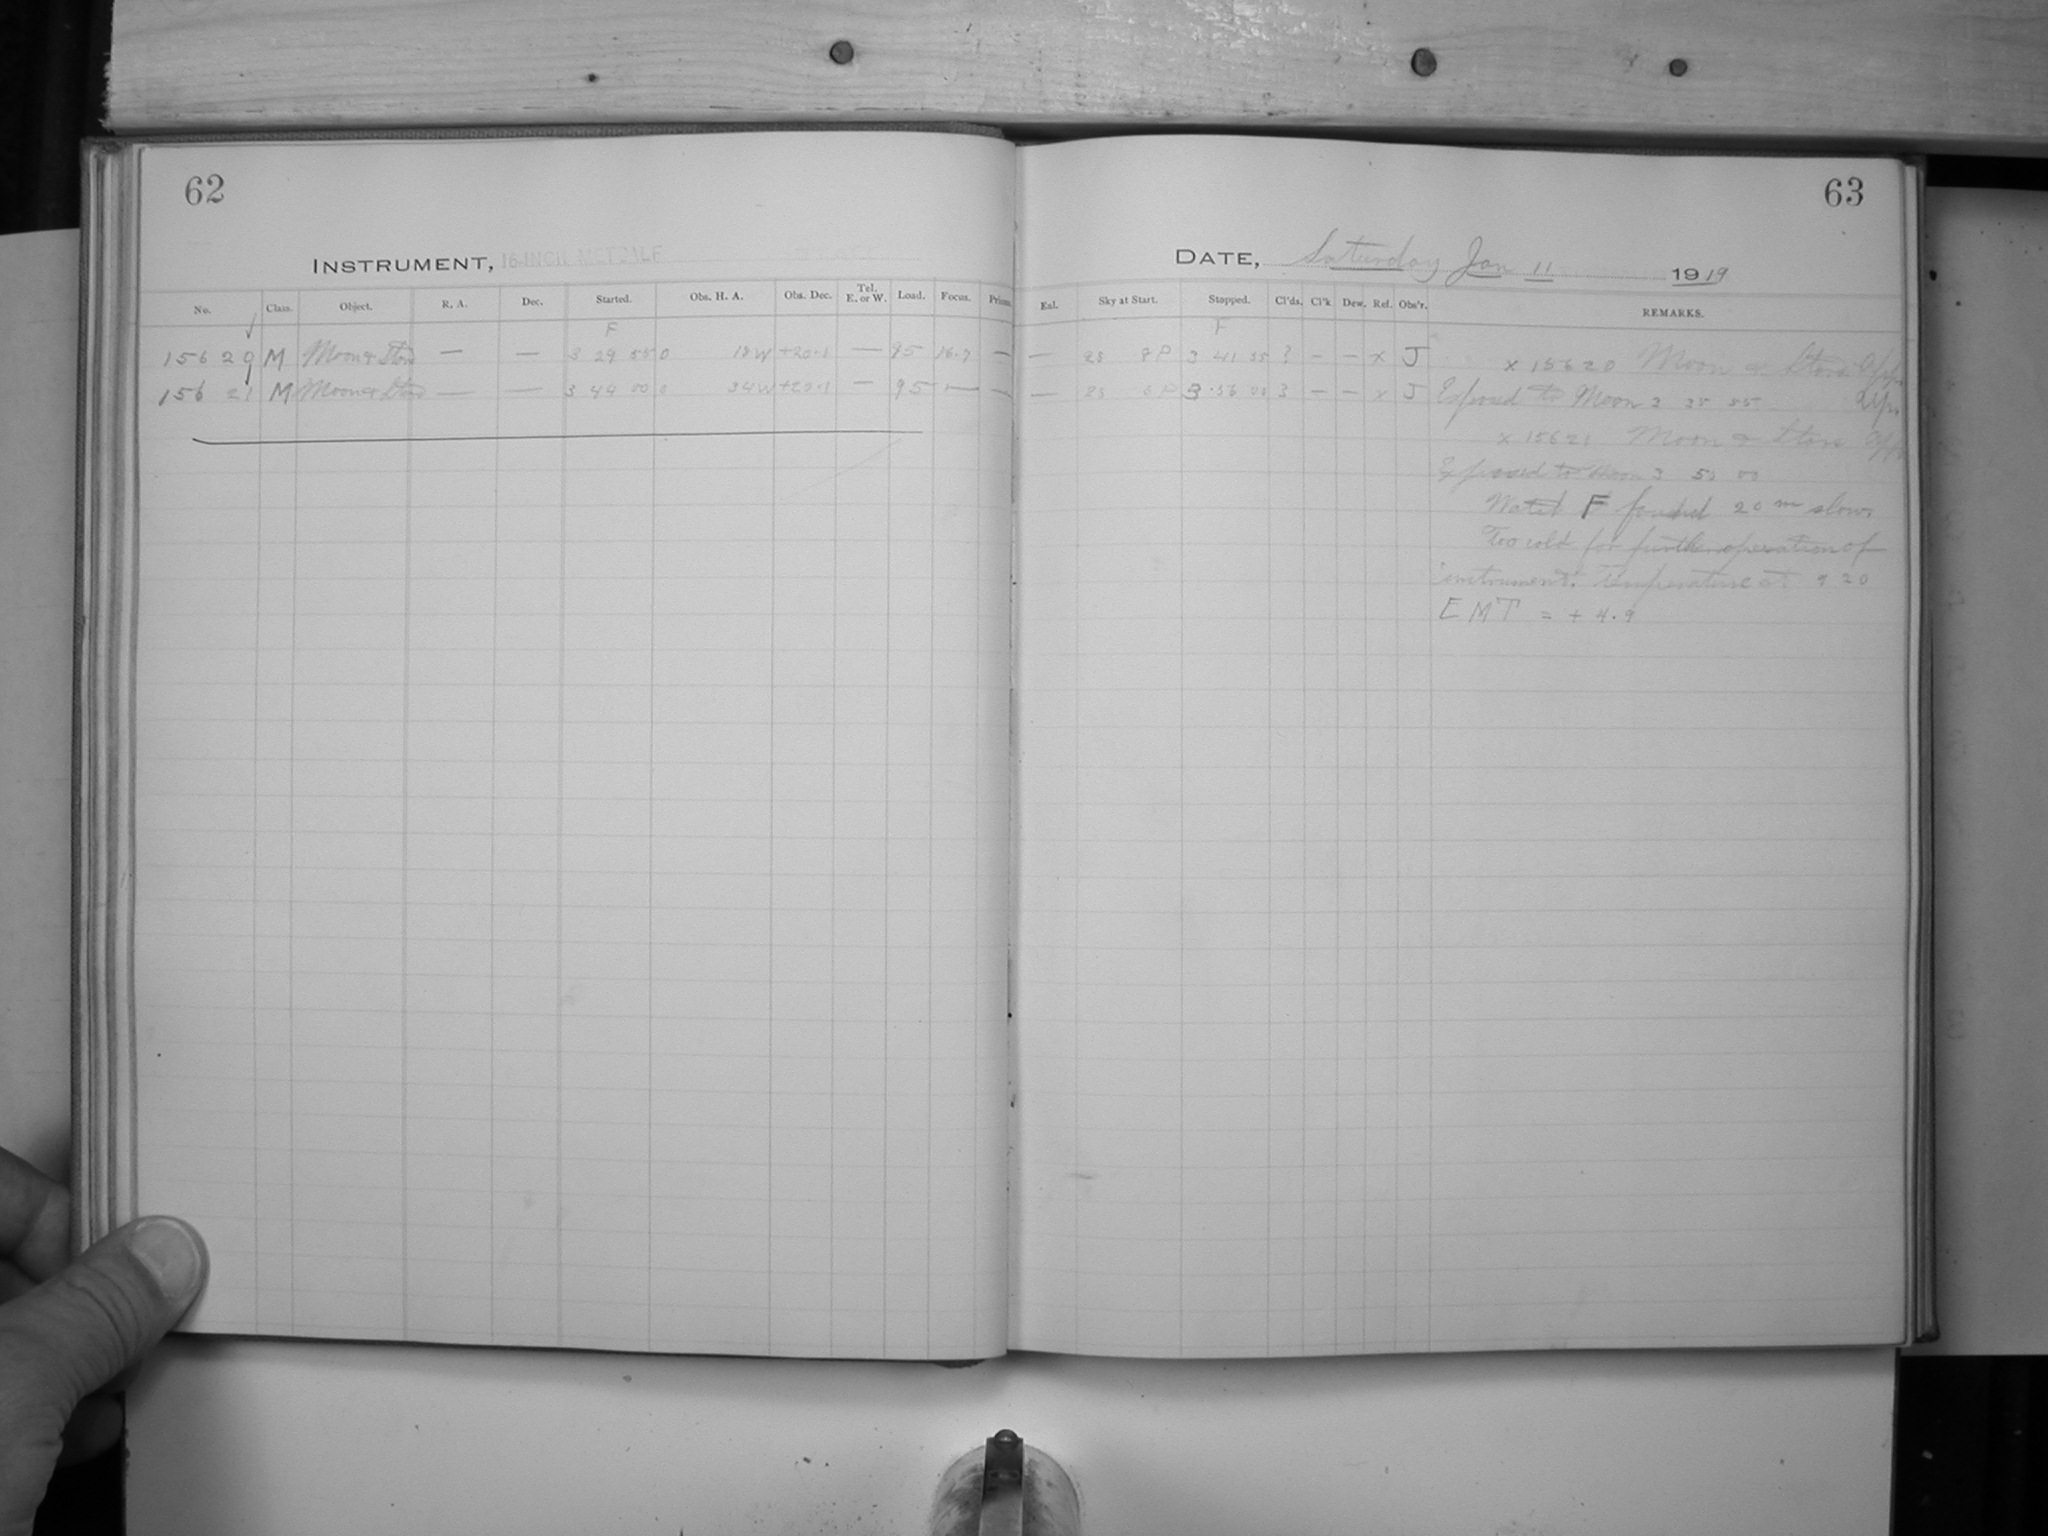 62
INSTRUMENT, 16-INCH METCALF
No. Class. Object. R. A. Dec. Started. Obs. H. A. Obs. Dec. Tel. E. or W. Load. Focus. Prism.
F
156 20 M Moon & Stars — — 3 29 55 0 18 W +20.1 — 95 16.9 —
156 21 M Moon & Stars — — 3 44 00 0 34 W +20.1 — 95 — —
63
DATE, Saturday Jan 11 1919
Exl. Sky at Start. Stopped. Cl'ds. Cl'k Dew. Rel. Obs'r. REMARKS.
F
— 28 P 3 41 55 ? – – x J x 15620 Moon & Stars
— 28 P 3 56 00 3 – – x J Exposed to Moon 3 35 55
x 15621 Moon & Stars
Exposed to Moon 3 50 00
Watch F found 20 m slow.
Too cold for further operation of
instrument. Temperature at 9 20
E M T = + 4.9